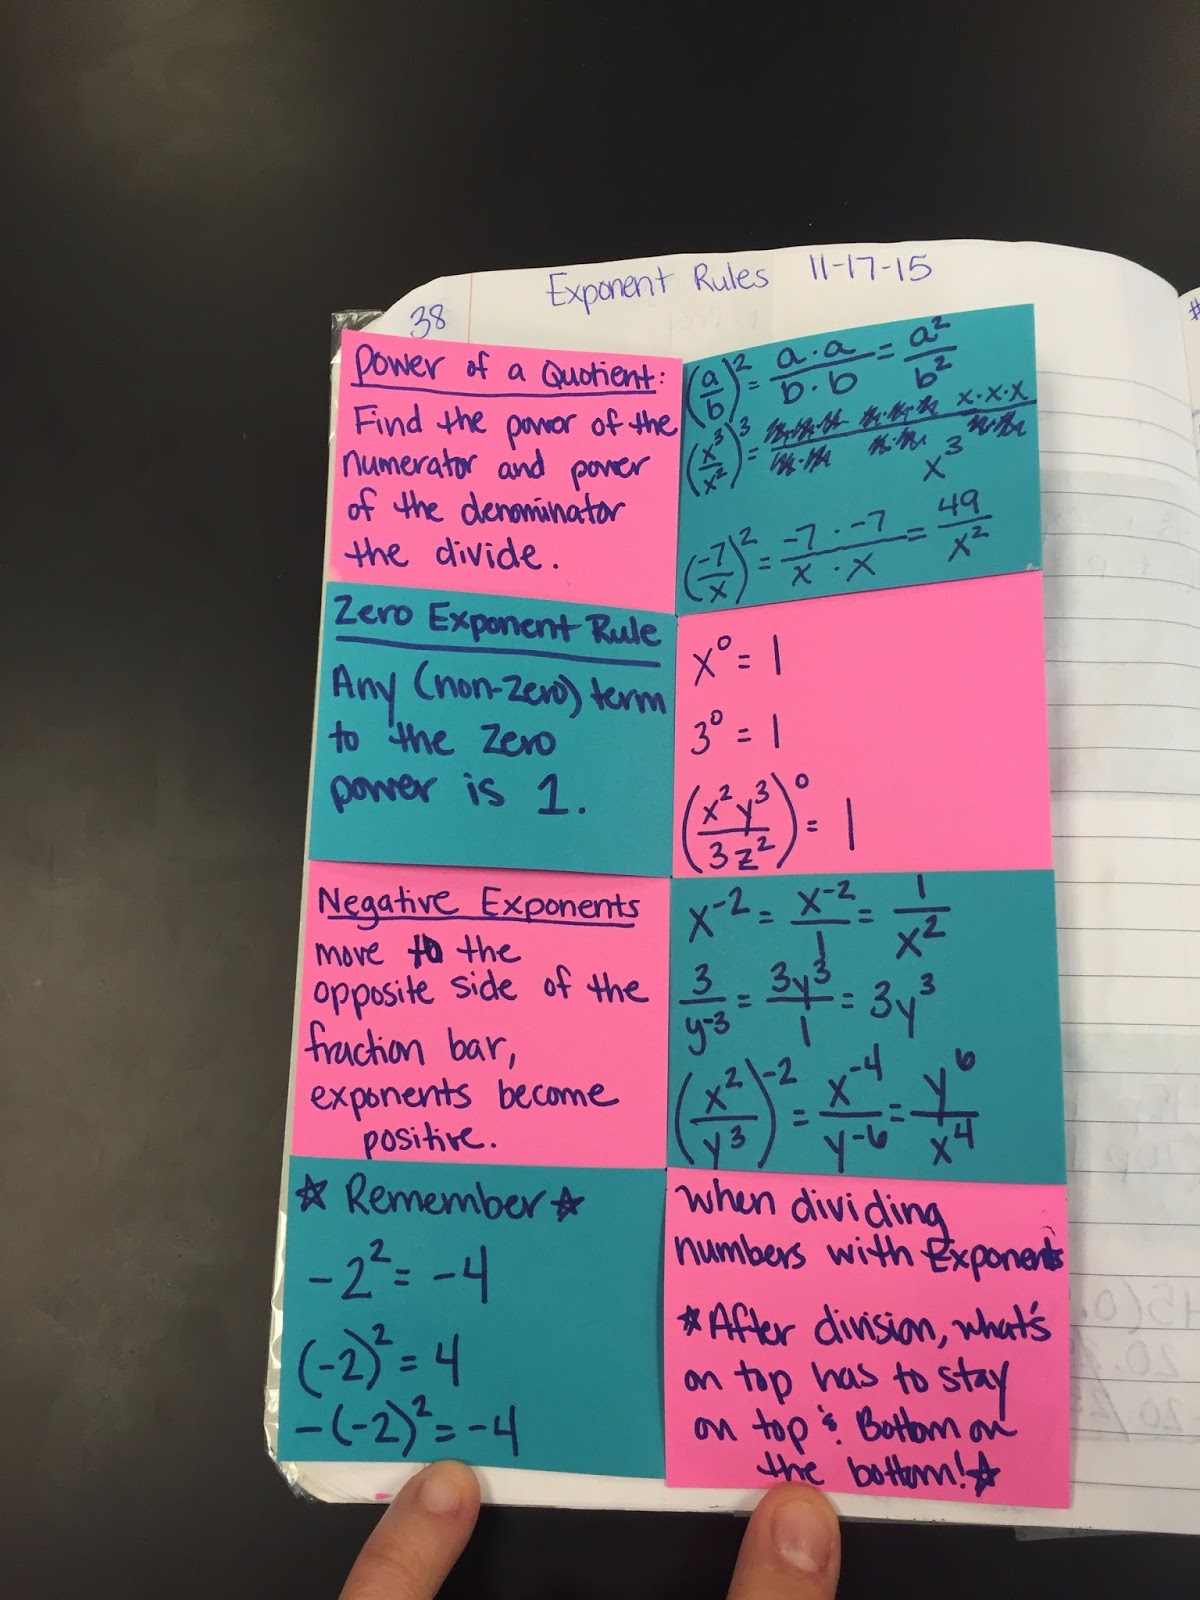 Exponent Rules 11-17-15
38
Power of a Quotient:
Find the power of the
numerator and power
of the denominator
the divide.
(a/b)² = a·a/b·b = a²/b²
(x³/x²)³ = x·x·x
x³
(-7/x)² = -7·-7/x·x = 49/x²
Zero Exponent Rule
Any (non-zero) term
to the zero
power is 1.
x⁰ = 1
3⁰ = 1
(x²y³/3z²)⁰ = 1
Negative Exponents
move to the
opposite side of the
fraction bar,
exponents become
positive.
x⁻² = x⁻²/1 = 1/x²
3/y⁻³ = 3y³/1 = 3y³
(x²/y³)⁻² = x⁻⁴/y⁻⁶ = y⁶/x⁴
☆ Remember ☆
-2² = -4
(-2)² = 4
-(-2)² = -4
when dividing
numbers with Exponents
☆After division, what's
on top has to stay
on top & Bottom on
the bottom!☆